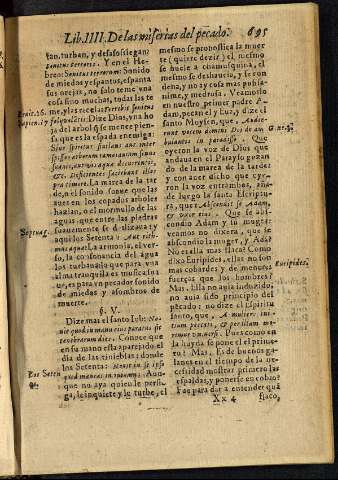 Lib. IIII. De las miserias del pecado. 695
tan, turban, y desassossiegan:
Sonitus terroris. Y en el He-
breo: Sonitus terrorum: Sonido
de miedos y espantos, espanta
sus orejas, no solo teme vna
cosa sino muchas, todas las te
me, y las recela:
Dize Dios, vna ho
ja del arbol que se menee pien-
sa que es la espada enemiga:
Siue spiritus sibilans aut inter
spissos arborum ramos auium sonus
suauis, aut vis aquæ decurrentis,
&c. Deficientes faciebant illos
præ timore. La marea de la tar
de, n el sonido sonoro que las
aues en los copados arboles
hazian, o el mormullo de las
aguas que entre las piedras
suauemente se deslizaua: y
aqui los Setenta:
la armonia, el ver-
so, la consonancia del agua
los turbaua: la que para vna
alma tranquila es musica sua
ue, es para vn pecador sonido
de miedos y asombros de
muerte.
§. V.
Dize mas el santo Iob: No-
uit quod in manu eius paratus sit
tenebrarum dies. Conoce que
en su mano esta aparejado el
dia de las tinieblas: donde
los Setenta: Nouit in se ipso
Aun-
que no aya quien le persi-
ga, le inquiete y le turbe, el
mesmo se pronostica la muer
te (quiere dezir) el mesmo
se huele a chamusquina, el
mesmo se deshauzia, y se con
dena, y no ay cosa mas pusila-
nime, y medrosa. Veamoslo
en nuestro primer padre A-
dam, pecan el y Eua, y dize el
santo Moysen, que, Audie-
runt vocem domini Dei deam
bulantis in paradiso. Que
oyeron la voz de Dios que
andaua en el Parayso gozan
do de la marea de la tarde
y con auer dicho que oye-
ron la voz entrambos, aña-
de luego la santa Escriptu-
ra, que: Abscondit se Adam,
& vxor eius. Que se abs-
condio Adam y su muger
veamos no dixera, que se
abscondio la muger, y Adã?
No era ella mas flaca? Como
dixo Euripides, ellas no son
mas cobardes y de menores
fuerças que los hombres?
Mas, Ella no auia induzido,
no auia sido principio del
pecado: no dize el Espiritu
santo, que, A muliere ini-
tium peccati, & per illam mo-
rimur omnes. Pues como en
la huyda se pone el el prime-
ro? Mas, Es de buenos ga-
lanes en el tiempo de la ne
cessidad mostrar primero las
espaldas, y ponerse en cobro?
Fue para dar a entender quã
Xx 4 flaco,
Leuit. 26.
Septuag.
Los Seten
Gene. 3.
Euripides.